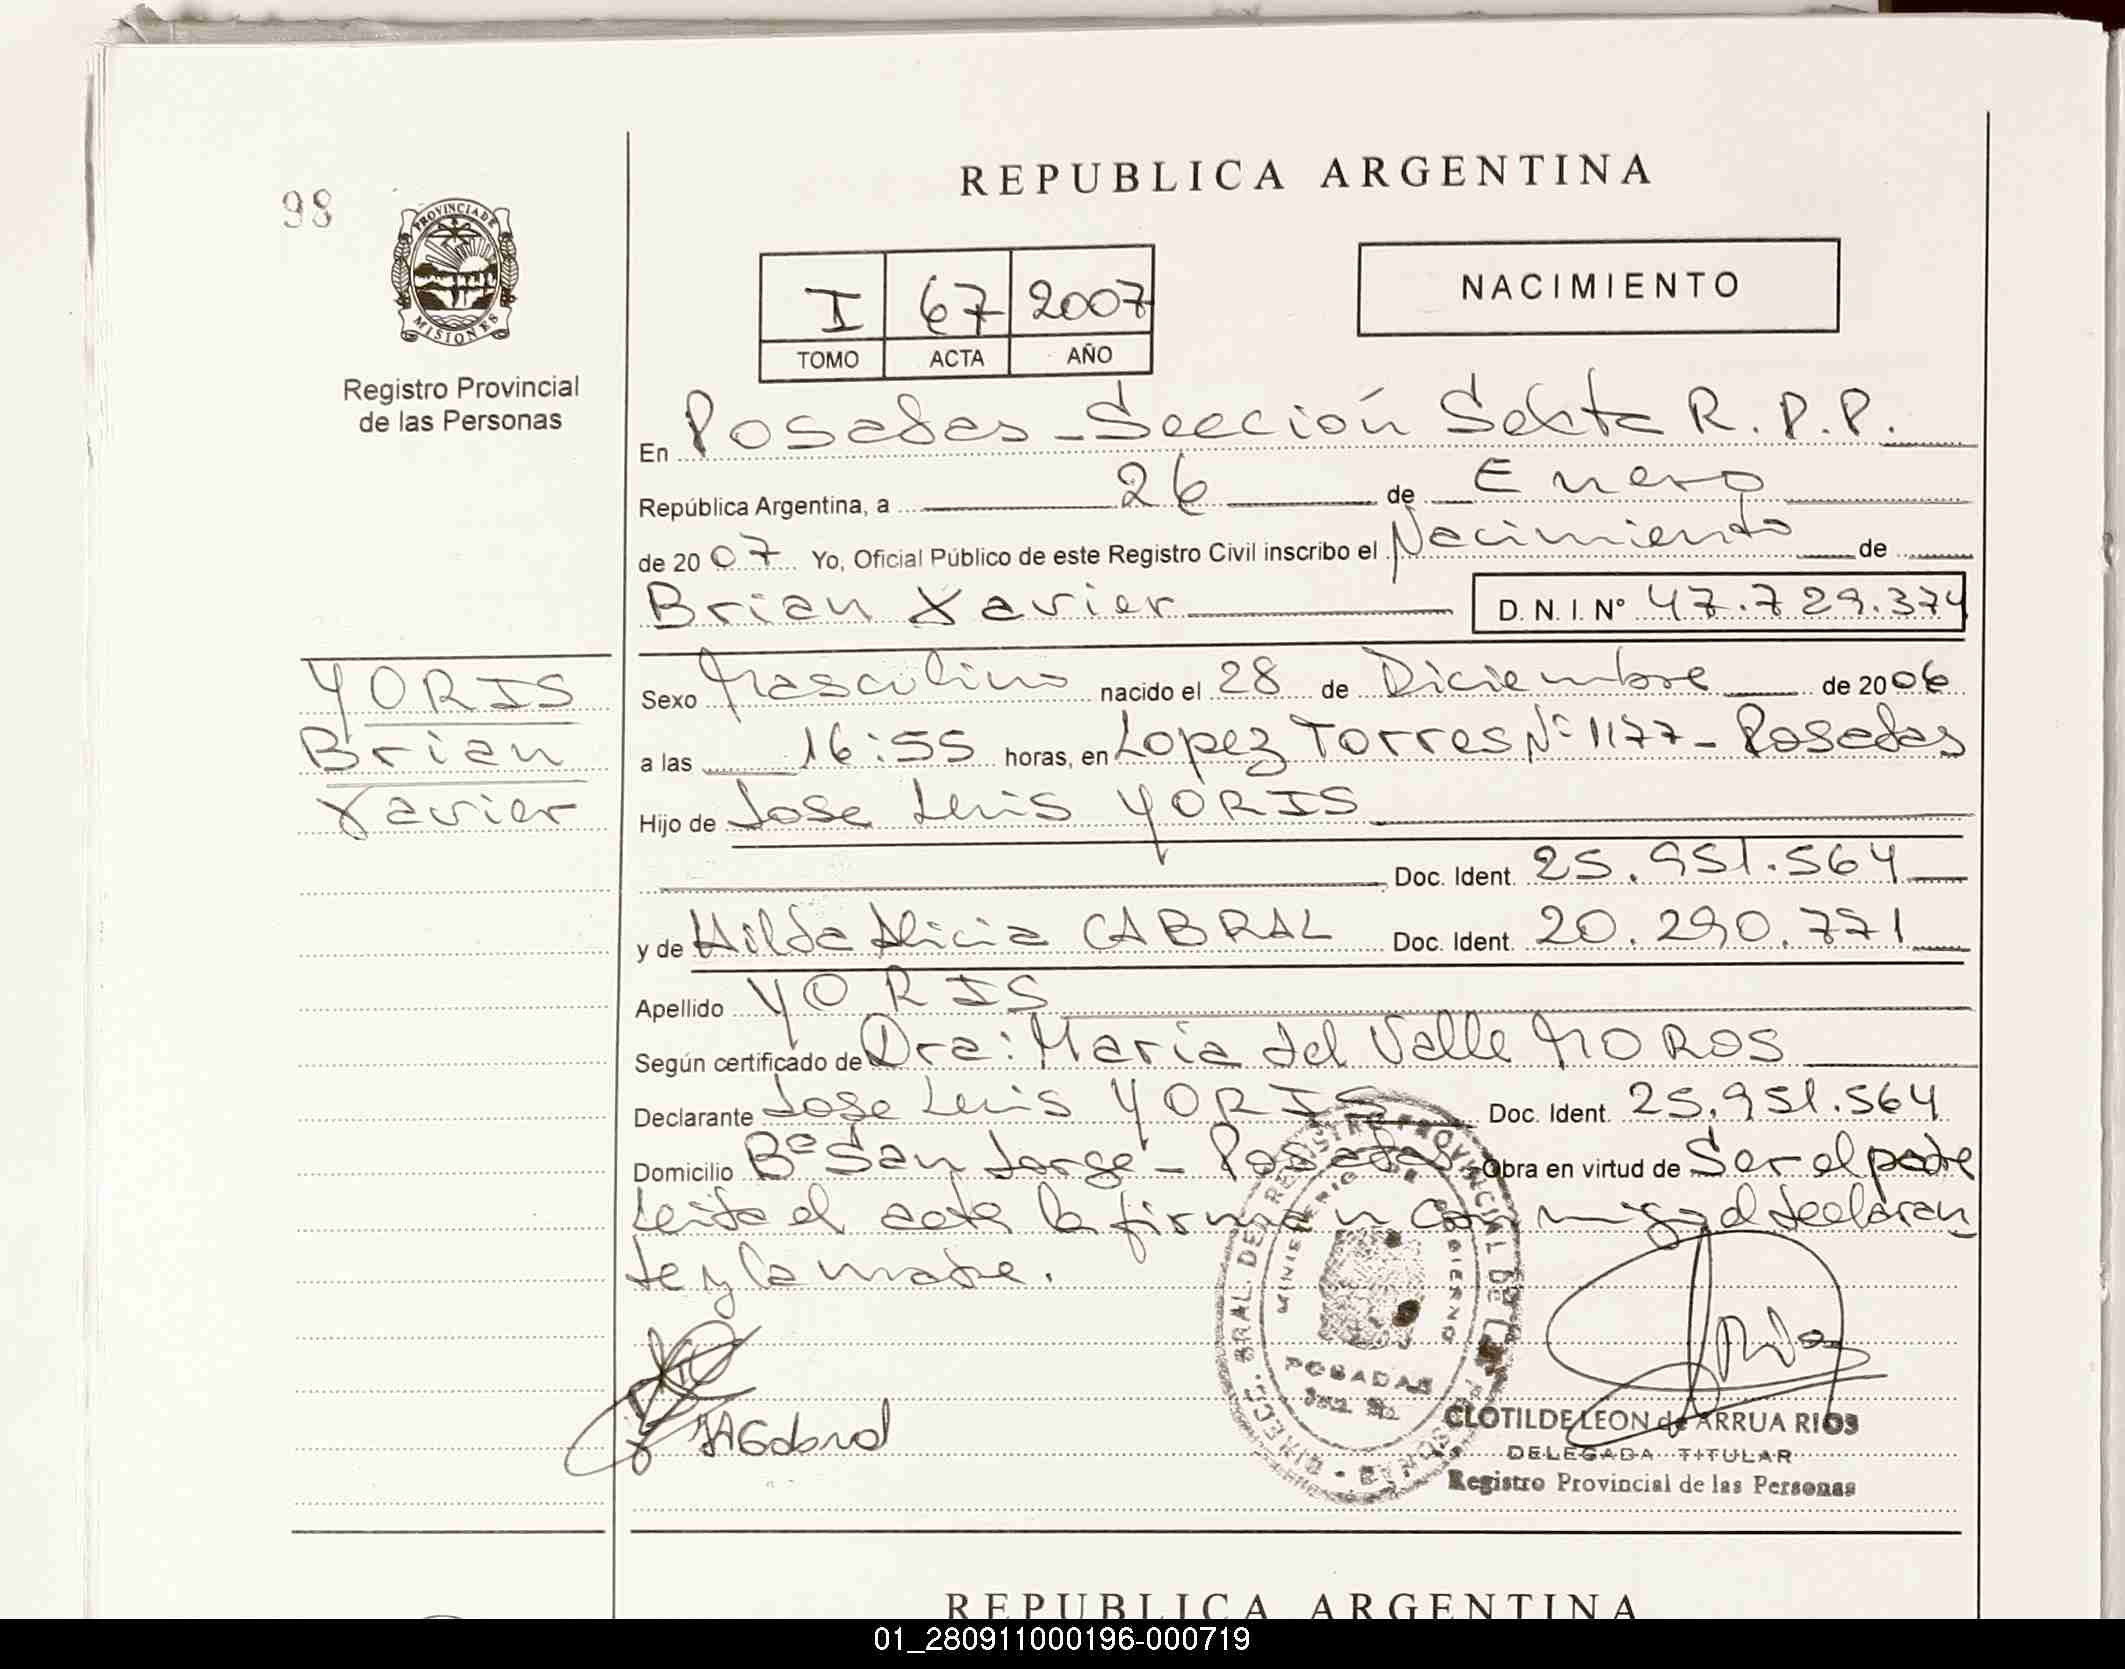 REPUBLICA ARGENTINA
98
PROVINCIA DE
MISIONES
Registro Provincial
de las Personas
I 67 2007
TOMO ACTA AÑO
NACIMIENTO
En Posadas - Sección Sexta R.P.P.
República Argentina, a 26 de Enero
de 2007 Yo, Oficial Público de este Registro Civil inscribo el Nacimiento de
Brian Xavier D.N.I. Nº 47.729.374
YORIS
Brian
Xavier
Sexo Masculino nacido el 28 de Diciembre de 2006
a las 16:55 horas, en Lopez Torres Nº 1177 - Posadas
Hijo de Jose Luis YORIS
Doc. Ident. 25.951.564
y de Hilda Alicia CABRAL Doc. Ident. 20.290.771
Apellido YORIS
Según certificado de Dra: Maria del Valle MOROS
Declarante Jose Luis YORIS Doc. Ident. 25.951.564
Domicilio Bº San Jorge - Posadas Obra en virtud de Ser el padre
Leida el acta la firman conmigo el declaran
te y la madre.
HACabral
DIRECC. GRAL. DEL REGISTRO PROVINCIAL DE LAS PERSONAS
MINISTERIO DE GOBIERNO
POSADAS
CLOTILDE LEON de ARRUA RIOS
DELEGADA TITULAR
Registro Provincial de las Personas
REPUBLICA ARGENTINA
01_280911000196-000719